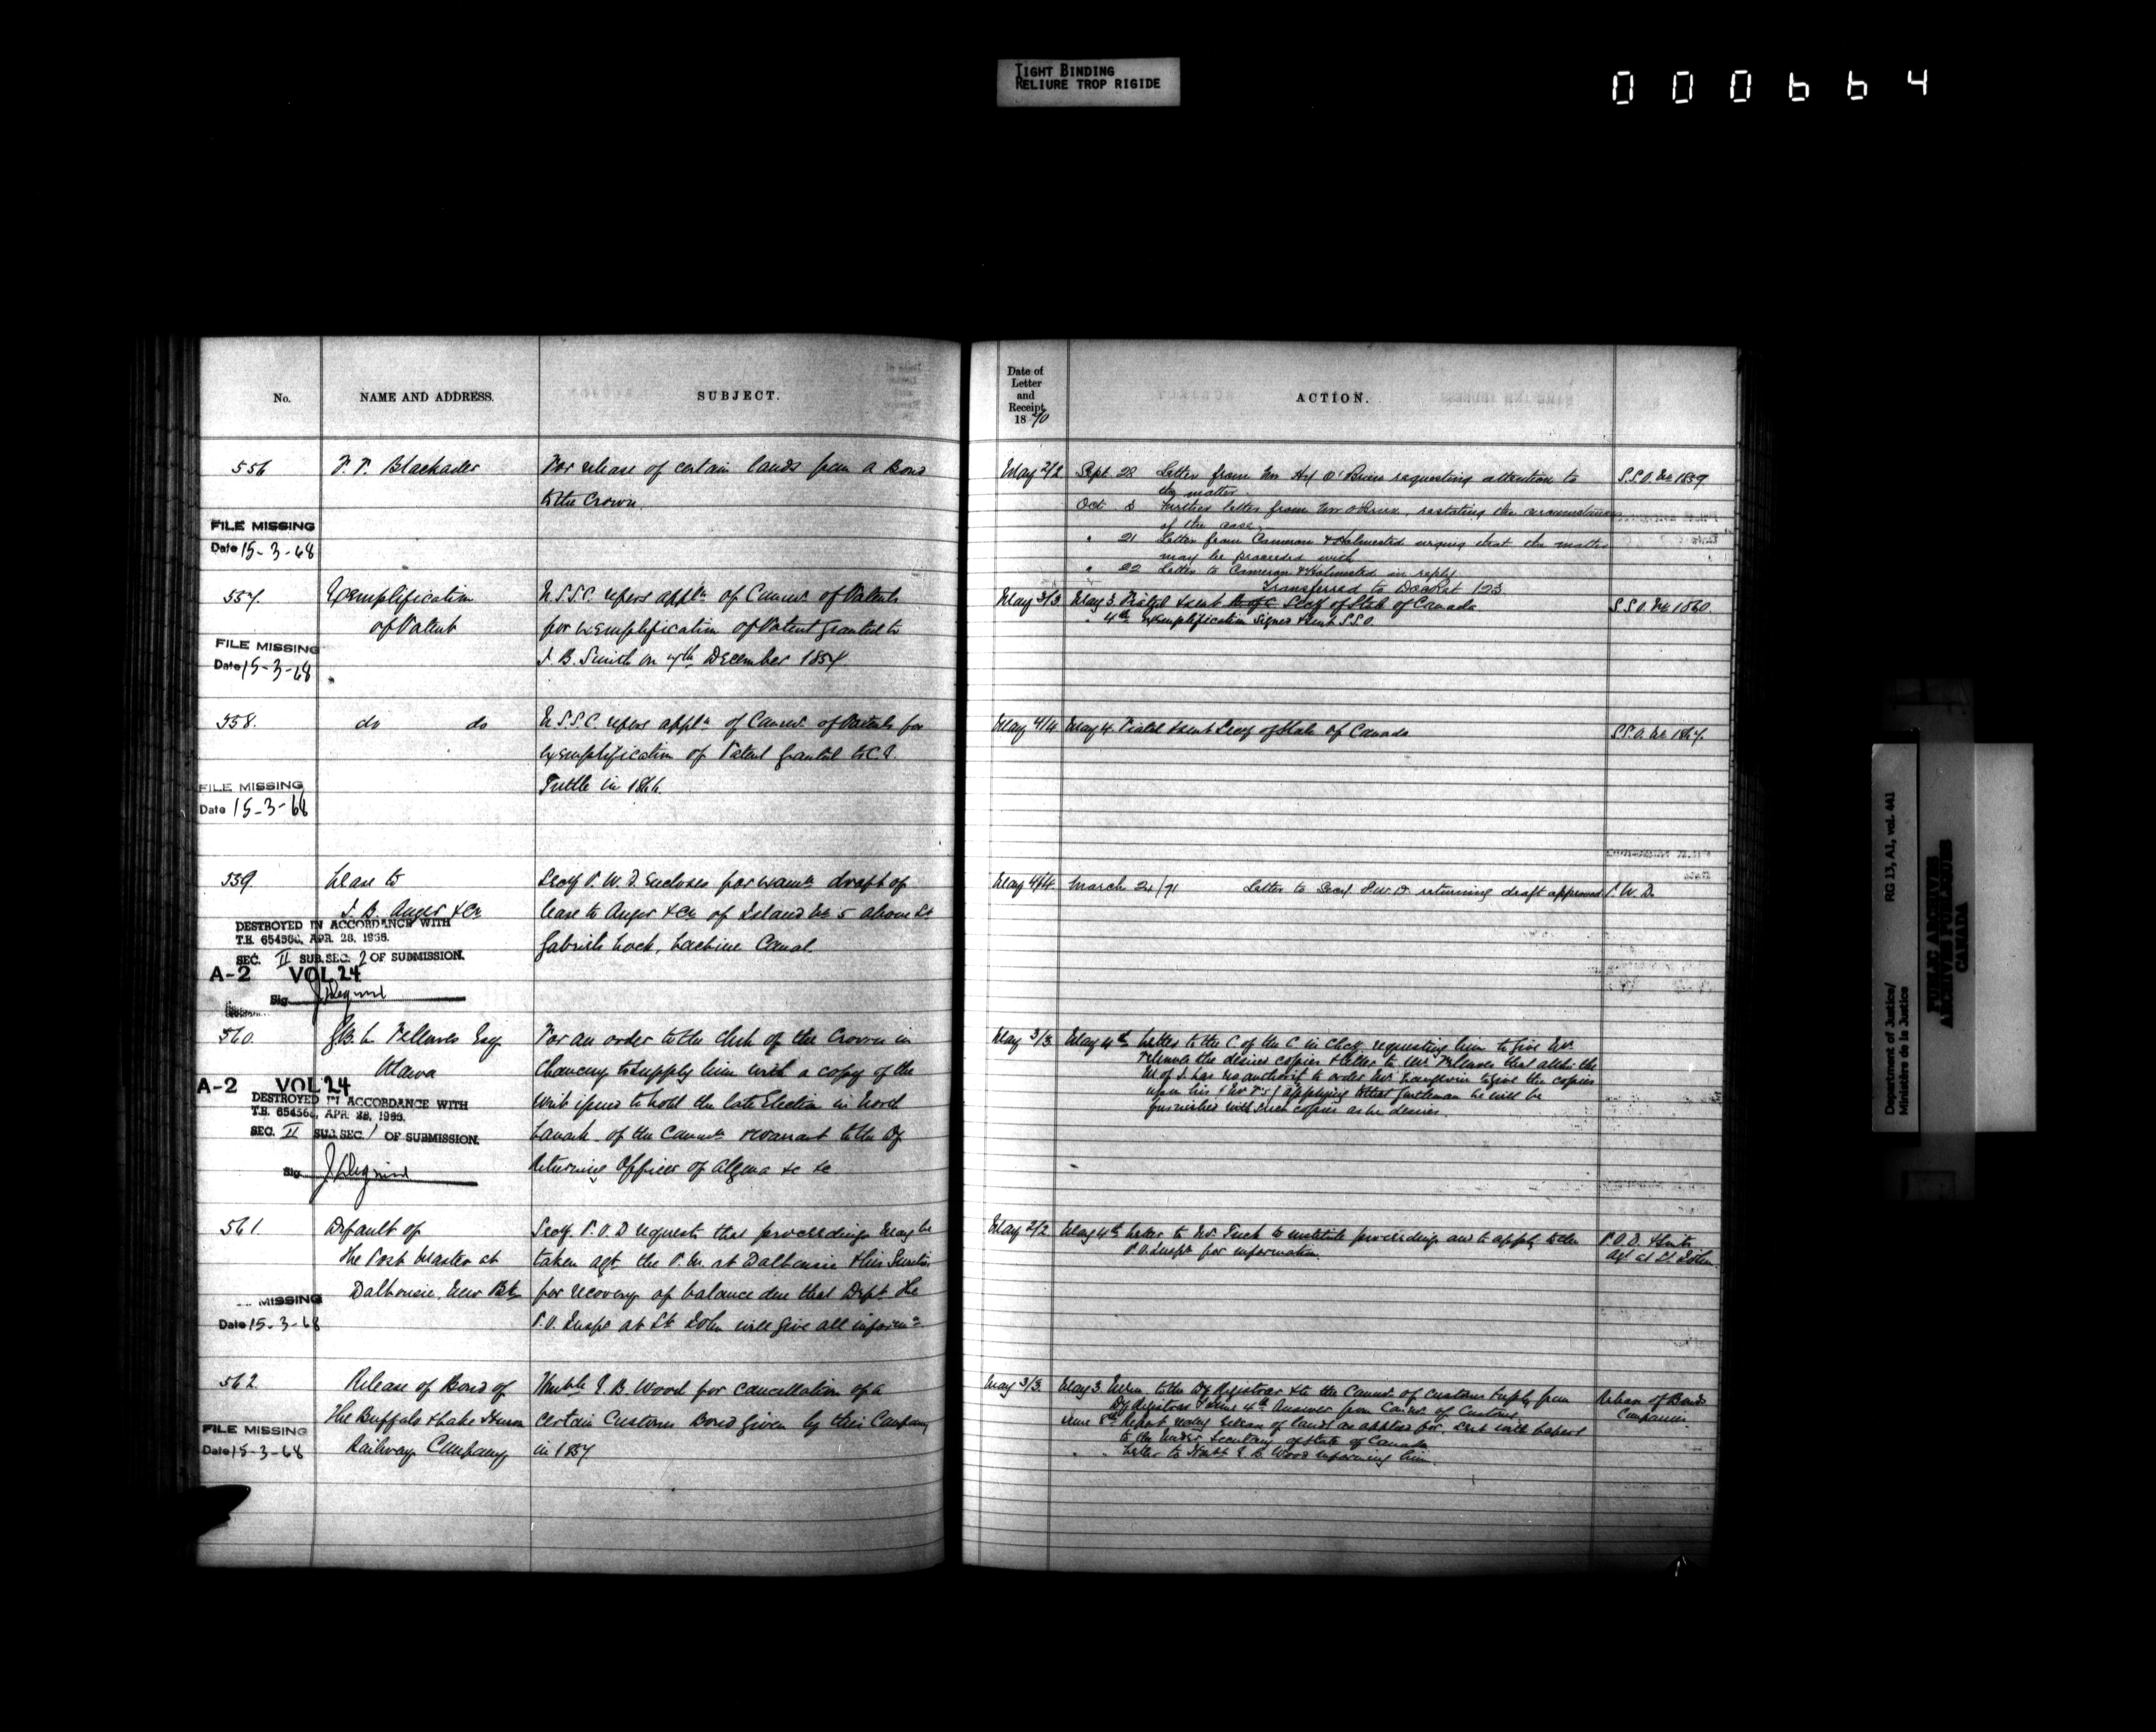 TIGHT BINDING
RELIURE TROP RIGIDE
000664
No.
NAME AND ADDRESS.
SUBJECT.
Date of
Letter
and
Receipt
1870
ACTION.
556
Blackader
For release of certain lands from a Bond
to the Crown.
FILE MISSING
Date 15-3-68
May 2/2
Sept. 28 Letter from Mr Hy O'Brien requesting attention to
the matter.
Oct 8 Further letter from Mr O'Brien, restating the circumstances
of the case.
" 21 Letter from Cameron & Holmested urging that the matter
may be proceeded with
" 22 Letter to Cameron & Holmested in reply
Transferred to Docket 123
S.S.O. No 1859
557.
Exemplification
of Patent
U.S.S.C. refers appln of Commr of Patents
for exemplification of Patent granted to
J. B. Smith on 7th December 1857
FILE MISSING
Date 15-3-68
May 3/3
May 3. Fiated & sent Secy of State of Canada
" 4th Exemplification signed & sent S.S.O.
S.S.O. No 1860.
558.
do do
U.S.S.C. refers appln of Commr of Patents for
exemplification of Patent granted to C. I.
Tuttle in 1866.
FILE MISSING
Date 15-3-68
May 4/4
May 4. Fiated & sent Secy of State of Canada
S.S.O. No 1867.
559.
Lease to
J. B. Auger & Co
Secy P.W.D. encloses for examn draft of
lease to Auger & Co of Island No 5 above St
Gabriels Lock, Lachine Canal.
DESTROYED IN ACCORDANCE WITH
T.B. 654566, APR. 28, 1966.
SEC. II SUB.SEC. 2 OF SUBMISSION.
A-2 VOL 24
Sig.
May 4/4
March 24/71 Letter to Secy P.W.D returning draft approved
P.W.D.
560.
Esq
Ottawa
For an order to the Clerk of the Crown in
Chancery to supply him with a copy of the
Writ issued to hold the late Election in North
Lanark of the Commn & warrant to the Dy
Returning Officer of Algoma &c &c
A-2 VOL 24
DESTROYED IN ACCORDANCE WITH
T.B. 654566, APR. 28, 1966.
SEC. II SUB.SEC. 1 OF SUBMISSION.
Sig.
May 3/3
May 4th Letter to the C of the C in Chcy requesting him to give Mr
the desired copies & letter to Mr that altho the
M of J. has no authority to order Mr to give the copies
upon his applying to that gentleman he will be
furnished with such copies as he desires.
561.
Default of
The Post Master at
Dalhousie, New Bk
Secy P.O.D requests that proceedings may be
taken agt the P.M. at Dalhousie & his Sureties
for recovery of balance due that Dept. The
P.O. Inspr at St John will give all informn
MISSING
Date 15-3-68
May 2/2
May 4th Letter to Mr Tuck to institute proceedings and to apply to the
P.O. Inspr for information.
P.O.D. &
Agt at St. John.
562.
Release of Bond of
The Buffalo & Lake Huron
Railway Company
Honble E. B. Wood for cancellation of a
certain Customs Bond given by this Company
in 1857.
FILE MISSING
Date 15-3-68
May 3/3
May 3. to the Dy Registrar & to the Commr of Customs & reply from
Dy Registrar June 4th Answer from Commr of Customs.
June 8th Report release of lands as applied for. Sent with papers
to the Under Secretary of State of Canada
" Letter to Honble E. B. Wood informing him.
Release of Bonds
Companies.
Department of Justice/
Ministère de la Justice
RG 13, A1, vol. 441
PUBLIC ARCHIVES
ARCHIVES PUBLIQUES
CANADA